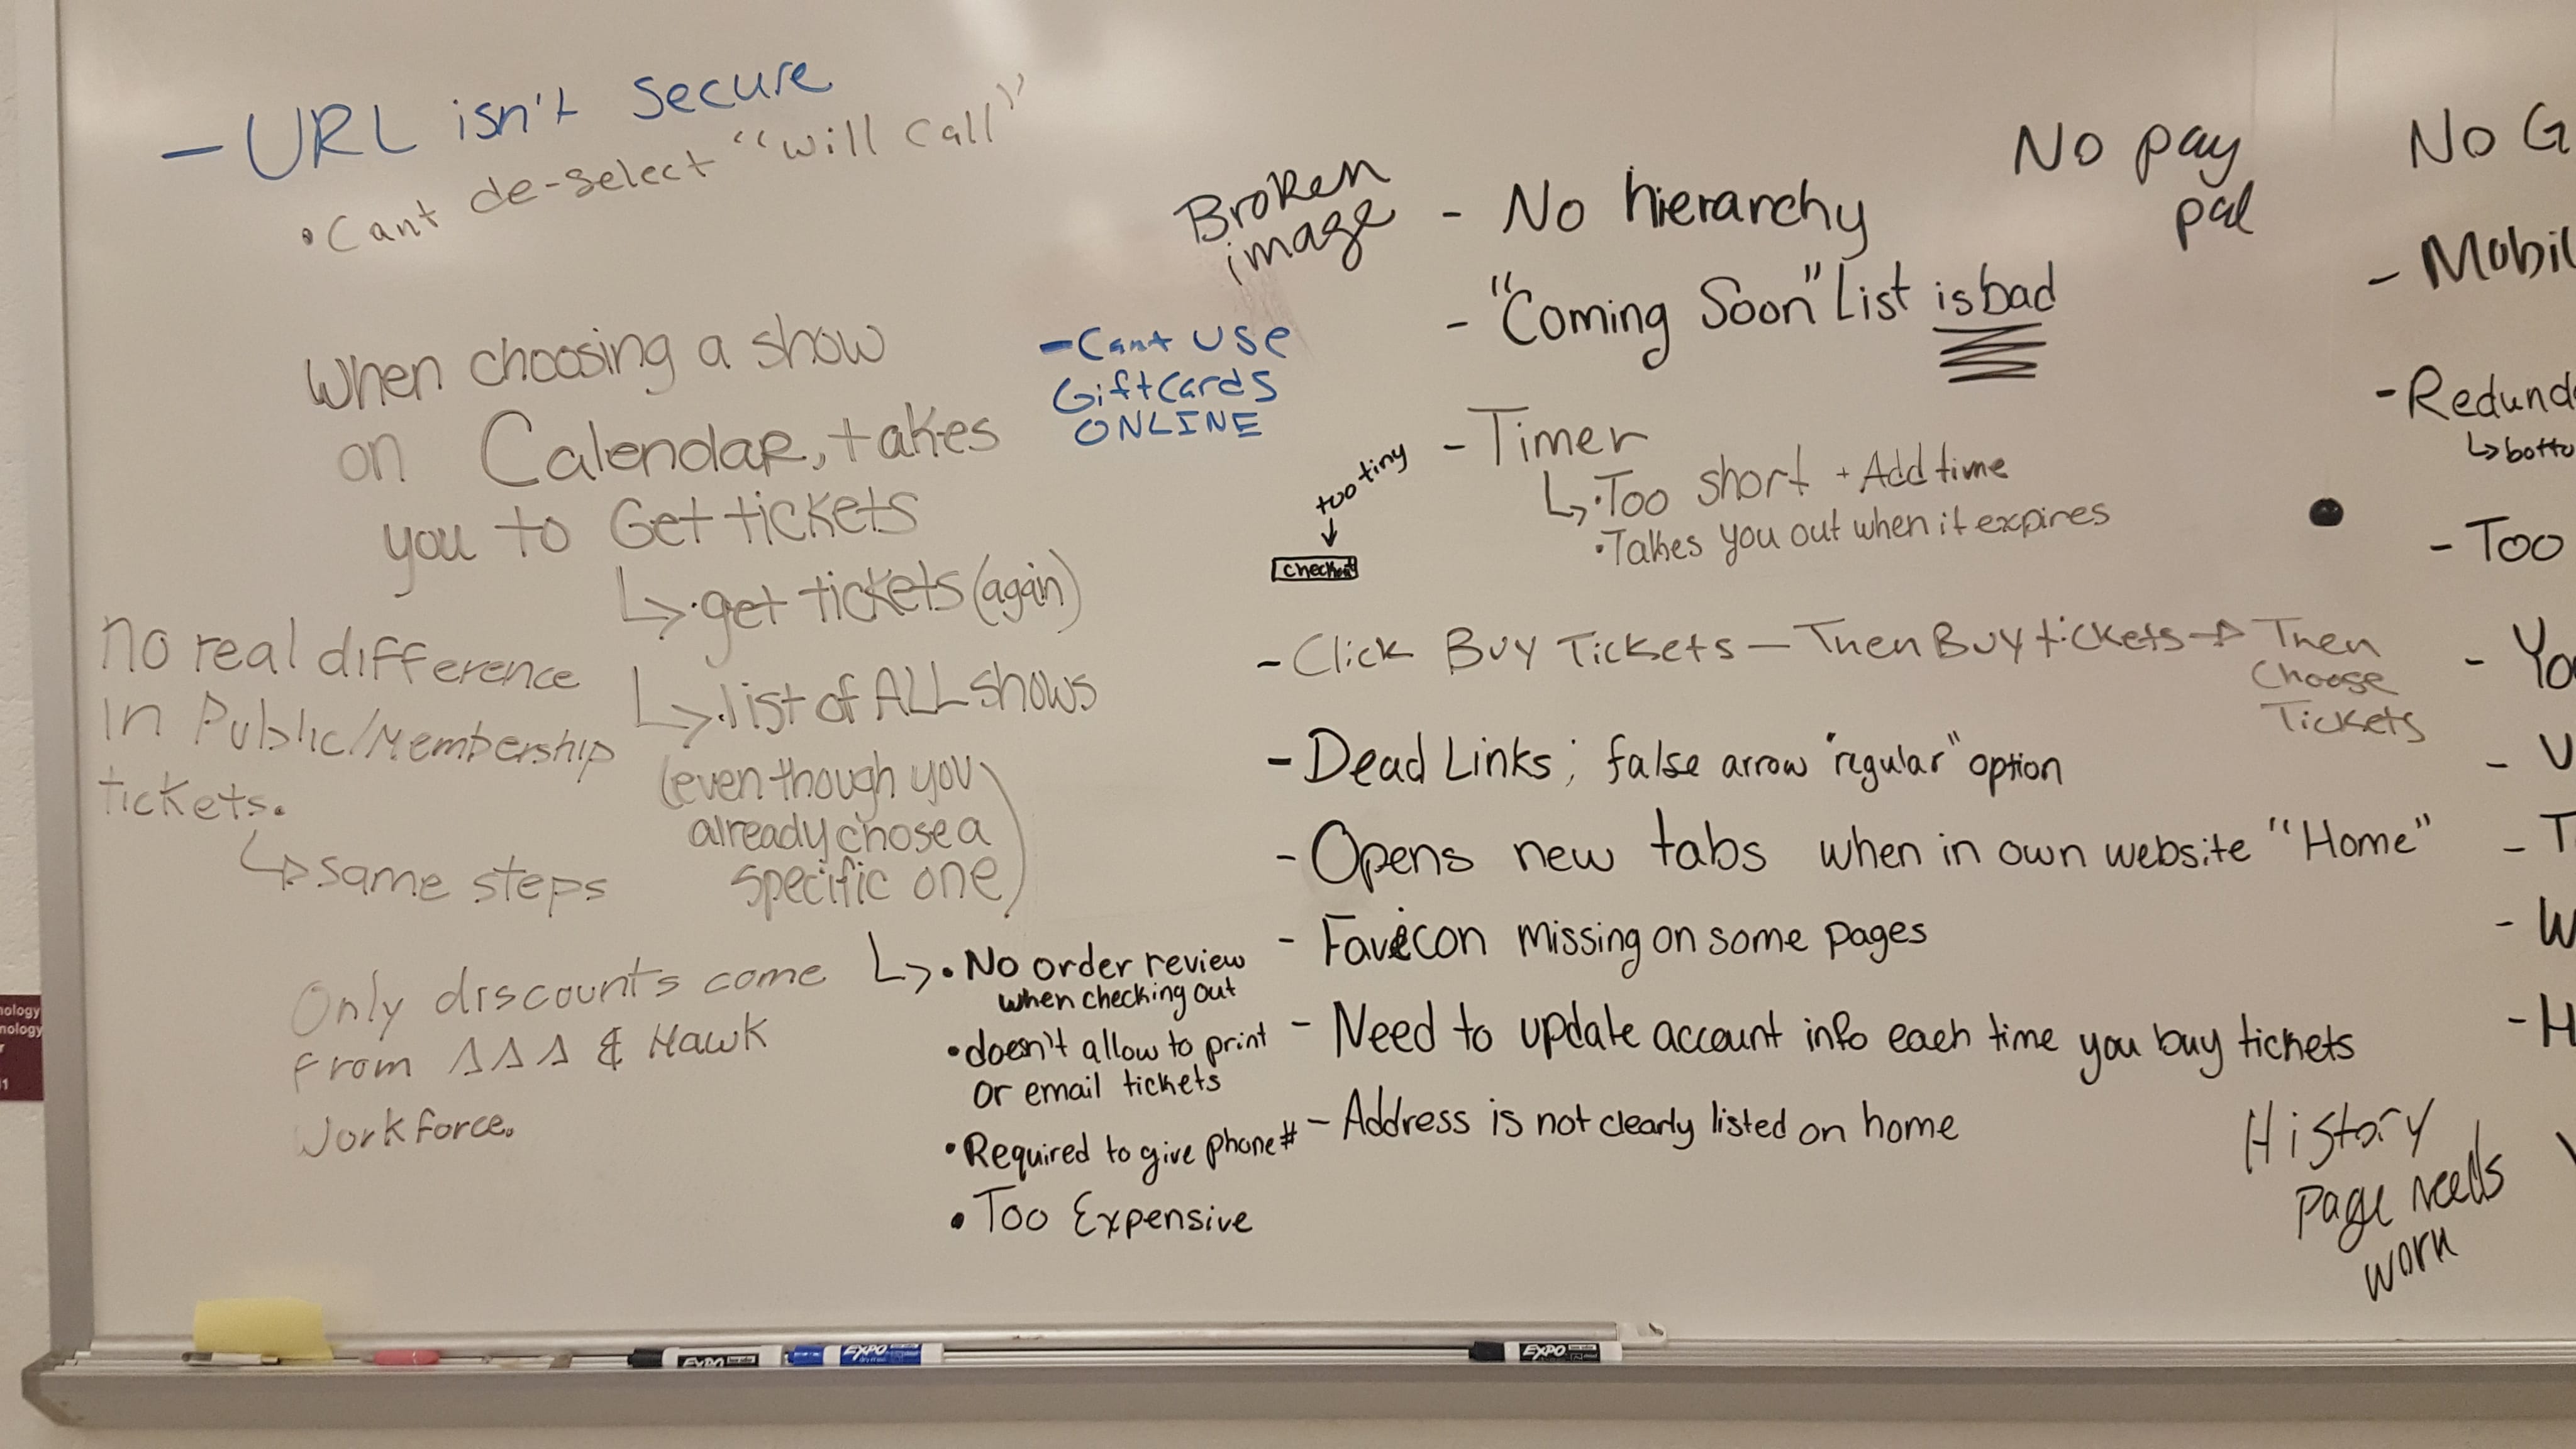 - URL isn't secure
• Cant de-select "Will Call"
When choosing a show
on Calendar, takes
you to Get tickets
↳ • get tickets (again)
↳ • list of ALL shows
(even though you
already chose a
specific one)
no real difference
in Public/Membership
tickets.
↳ same steps
Only discounts come
from AAA & Hawk
workforce.
↳ • No order review
when checking out
• doesn't allow to print
or email tickets
• Required to give phone #
• Too Expensive
- Cant use
GiftCards
ONLINE
Broken
image
too tiny
↓
checkout
- No hierarchy
- "Coming Soon" List is bad
- Timer
↳ • Too short + Add time
• Takes you out when it expires
- Click Buy Tickets — Then Buy tickets → Then
Choose
Tickets
- Dead Links; false arrow "regular" option
- Opens new tabs when in own website "Home"
- Favicon missing on some pages
- Need to update account info each time you buy tickets
- Address is not clearly listed on home
No pay
pal
History
Page needs
work
No G
- Mobil
- Redund
↳ botto
- Too
- Yo
- U
- T
- W
- H
nology
nology
EXPO
EXPO
EXPO